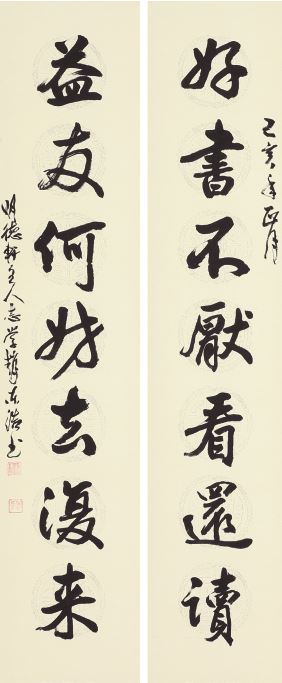 己亥年正月
好書不厭看還讀
益友何妨去復来
明德轩主人志学书